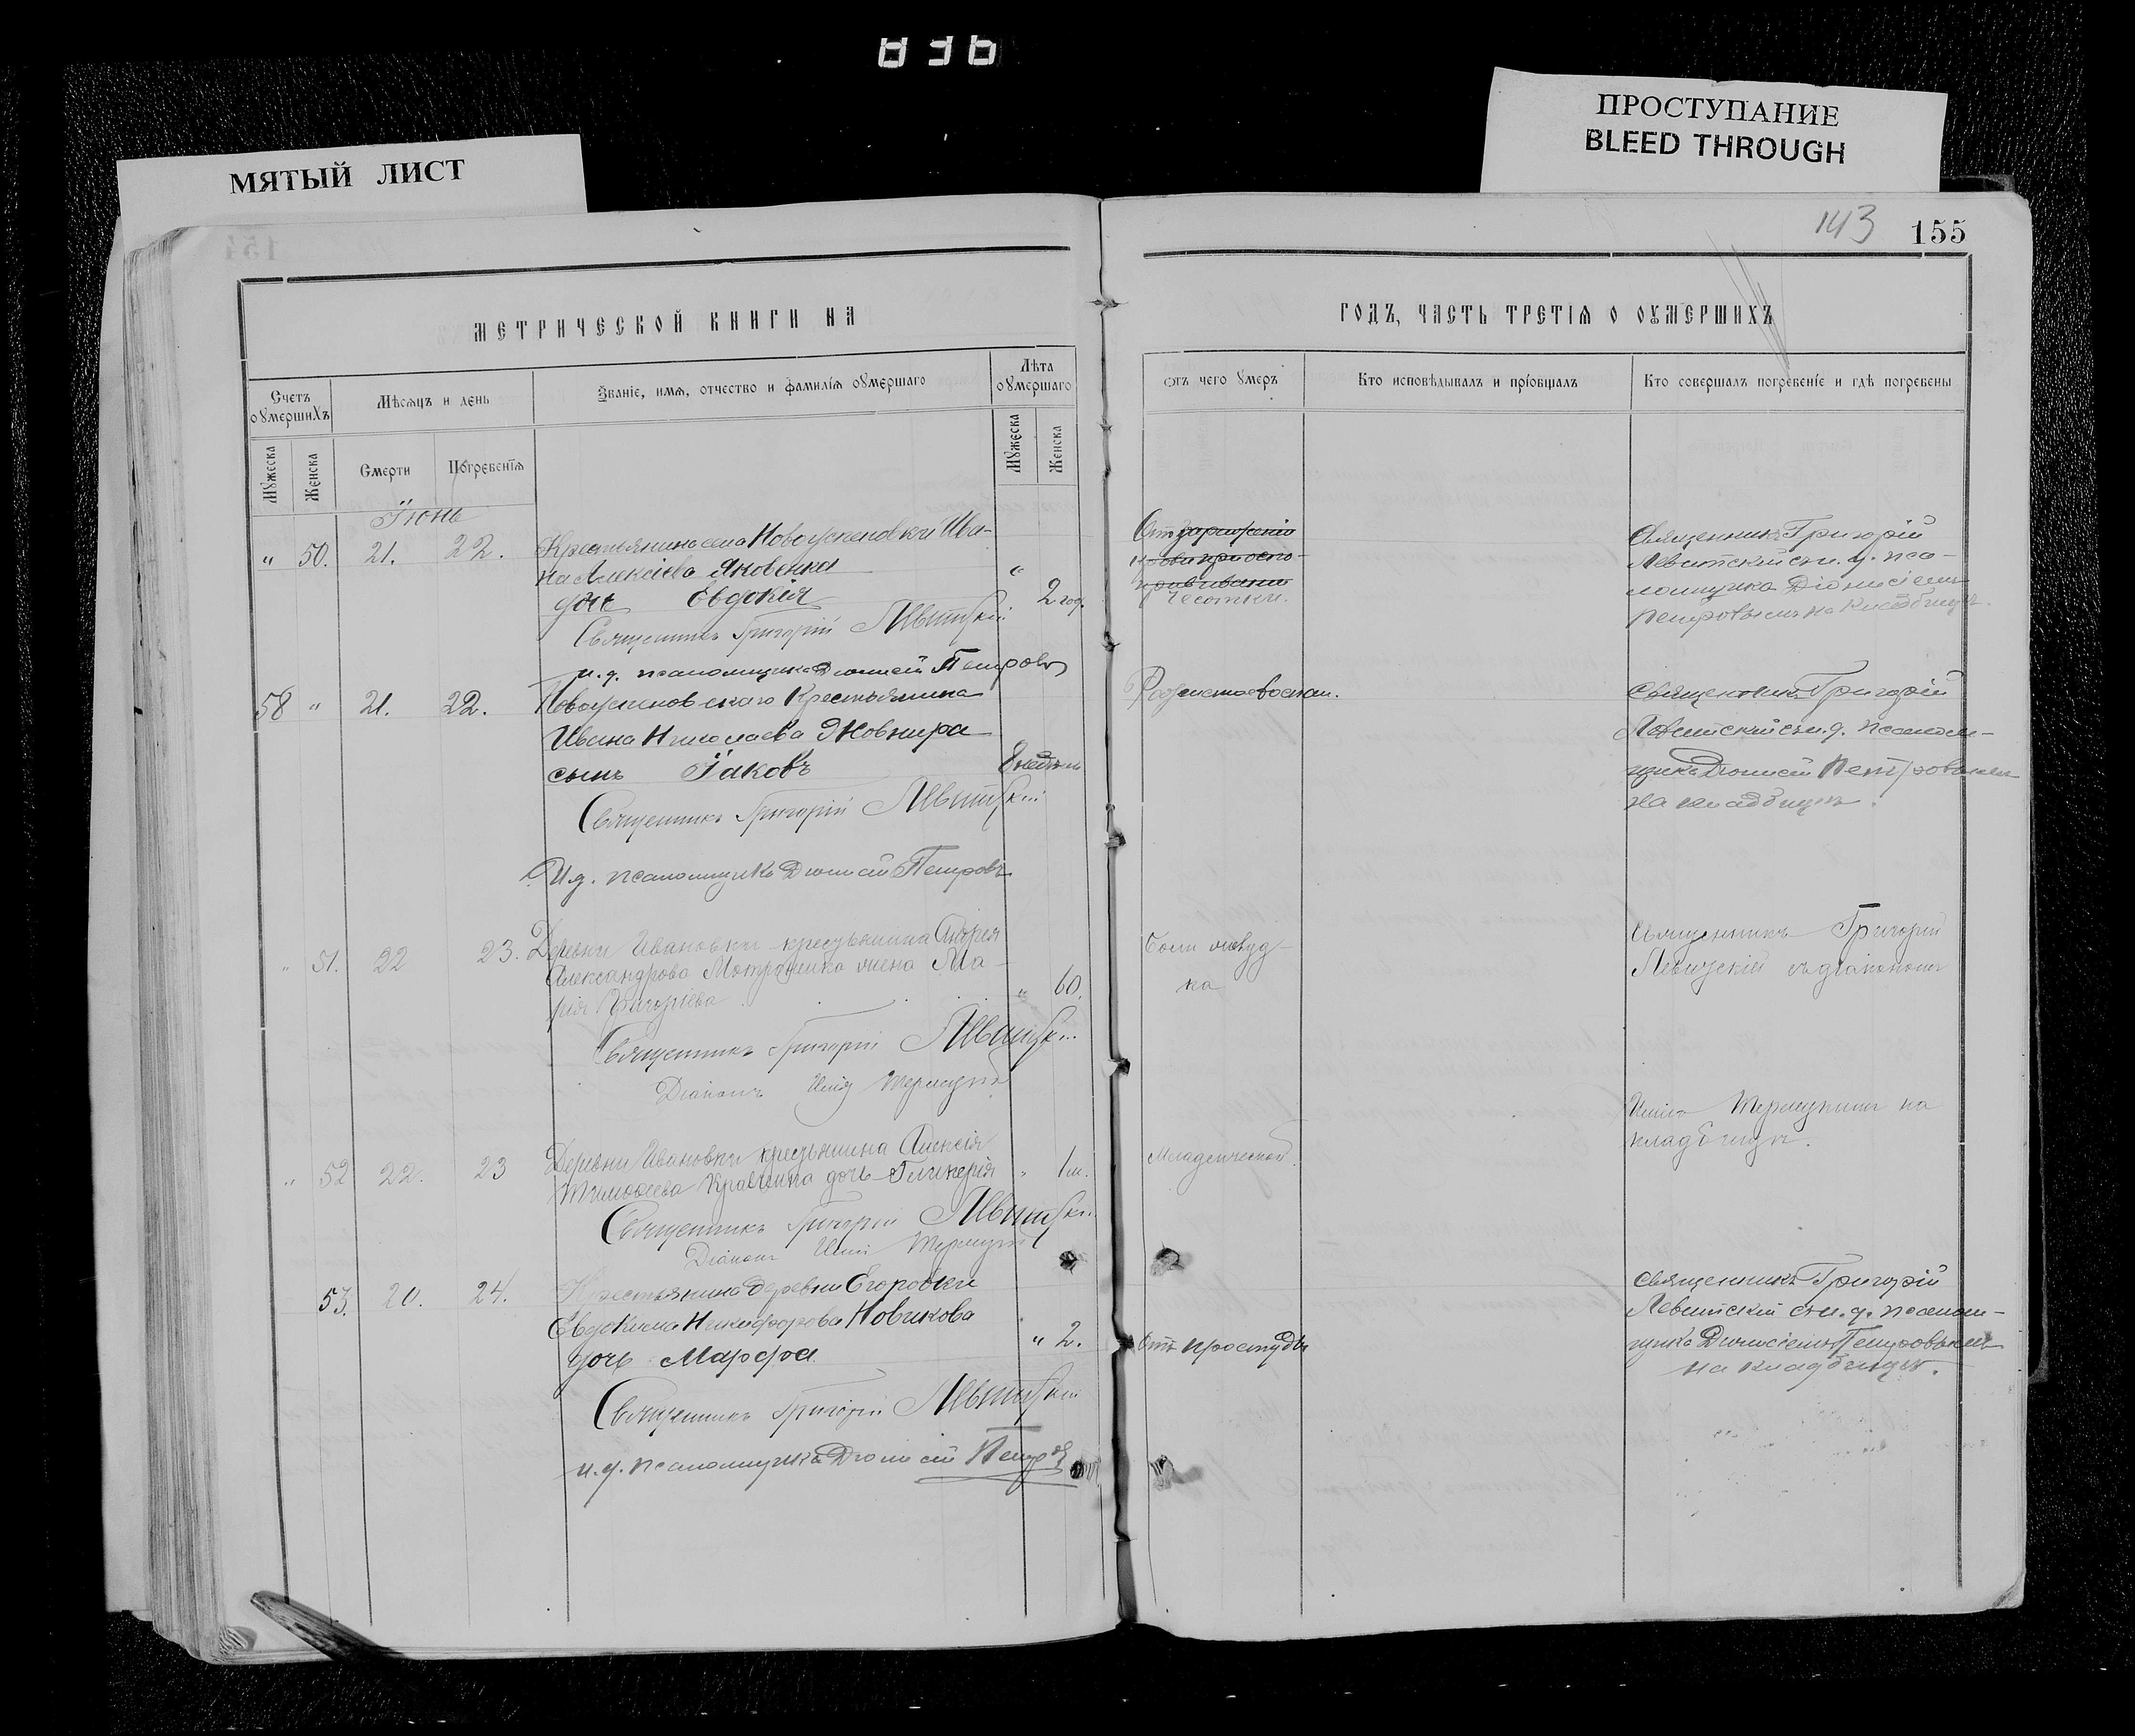 836
МЯТЫЙ ЛИСТ
ПРОСТУПАНИЕ
BLEED THROUGH
143 155
МЕТРИЧЕСКОЙ КНИГИ НА
Счетъ оумершихъ
Мѣсяцъ и день
Званіе, имя, отчество и фамилія оумершаго
Лѣта оумершаго
Мужеска
Женска
Смерти
Погребенія
Мужеска
Женска
Іюнь
" 50. 21. 22. Крестьянина села Новоуспеновки Ива-
на Алексіева Яковенка "
дочь Евдокія 2 год.
Священникъ Григорій Левитскій
и. д. псаломщика Діонисій Петровъ
58 " 21. 22. Новоуспеновскаго Крестьянина
Ивана Николаева Жовнира
сынъ Іаковъ 8 недѣль
Священникъ Григорій Левитскій
И.д. псаломщика Діонисій Петровъ
" 51. 22 23. Деревни Ивановки крестьянина Андрея
Александрова жена Ма-
рія Григоріева " 60.
Священникъ Григорій Левитскій
Діаконъ
" 52 22. 23 Деревни Ивановки крестьянина Алексія
Тимофеева Кравчина дочь Гликерія " 1 м.
Священникъ Григорій Левитскій
Діаконъ
53. 20. 24. Крестьянина деревни Егоровки
Евдокима Никифорова Новикова
дочь Марфа " 2.
Священникъ Григорій Левитскій
и. д. псаломщика Діонисій Петровъ
ГОДЪ, ЧАСТЬ ТРЕТІЯ О ОУМЕРШИХЪ
Отъ чего умеръ
Кто исповѣдывалъ и пріобщалъ
Кто совершалъ погребеніе и гдѣ погребены
Отъ
чесотки.
Священникъ Григорій
Левитскій съ и. д. пса-
ломщика Діонисіемъ
Петровымъ на кладбищѣ.
Священникъ Григорій
Левитскій съ и. д. псалом-
щика Діонисій Петровымъ
на кладбищѣ.
Боли желуд-
ка
Священникъ Григорій
Левитскій съ діакономъ
на
кладбищѣ.
Младенческой
Отъ простуды
Священникъ Григорій
Левитскій съ и. д. псалом-
щика Діонисіемъ Петровымъ
на кладбищѣ.